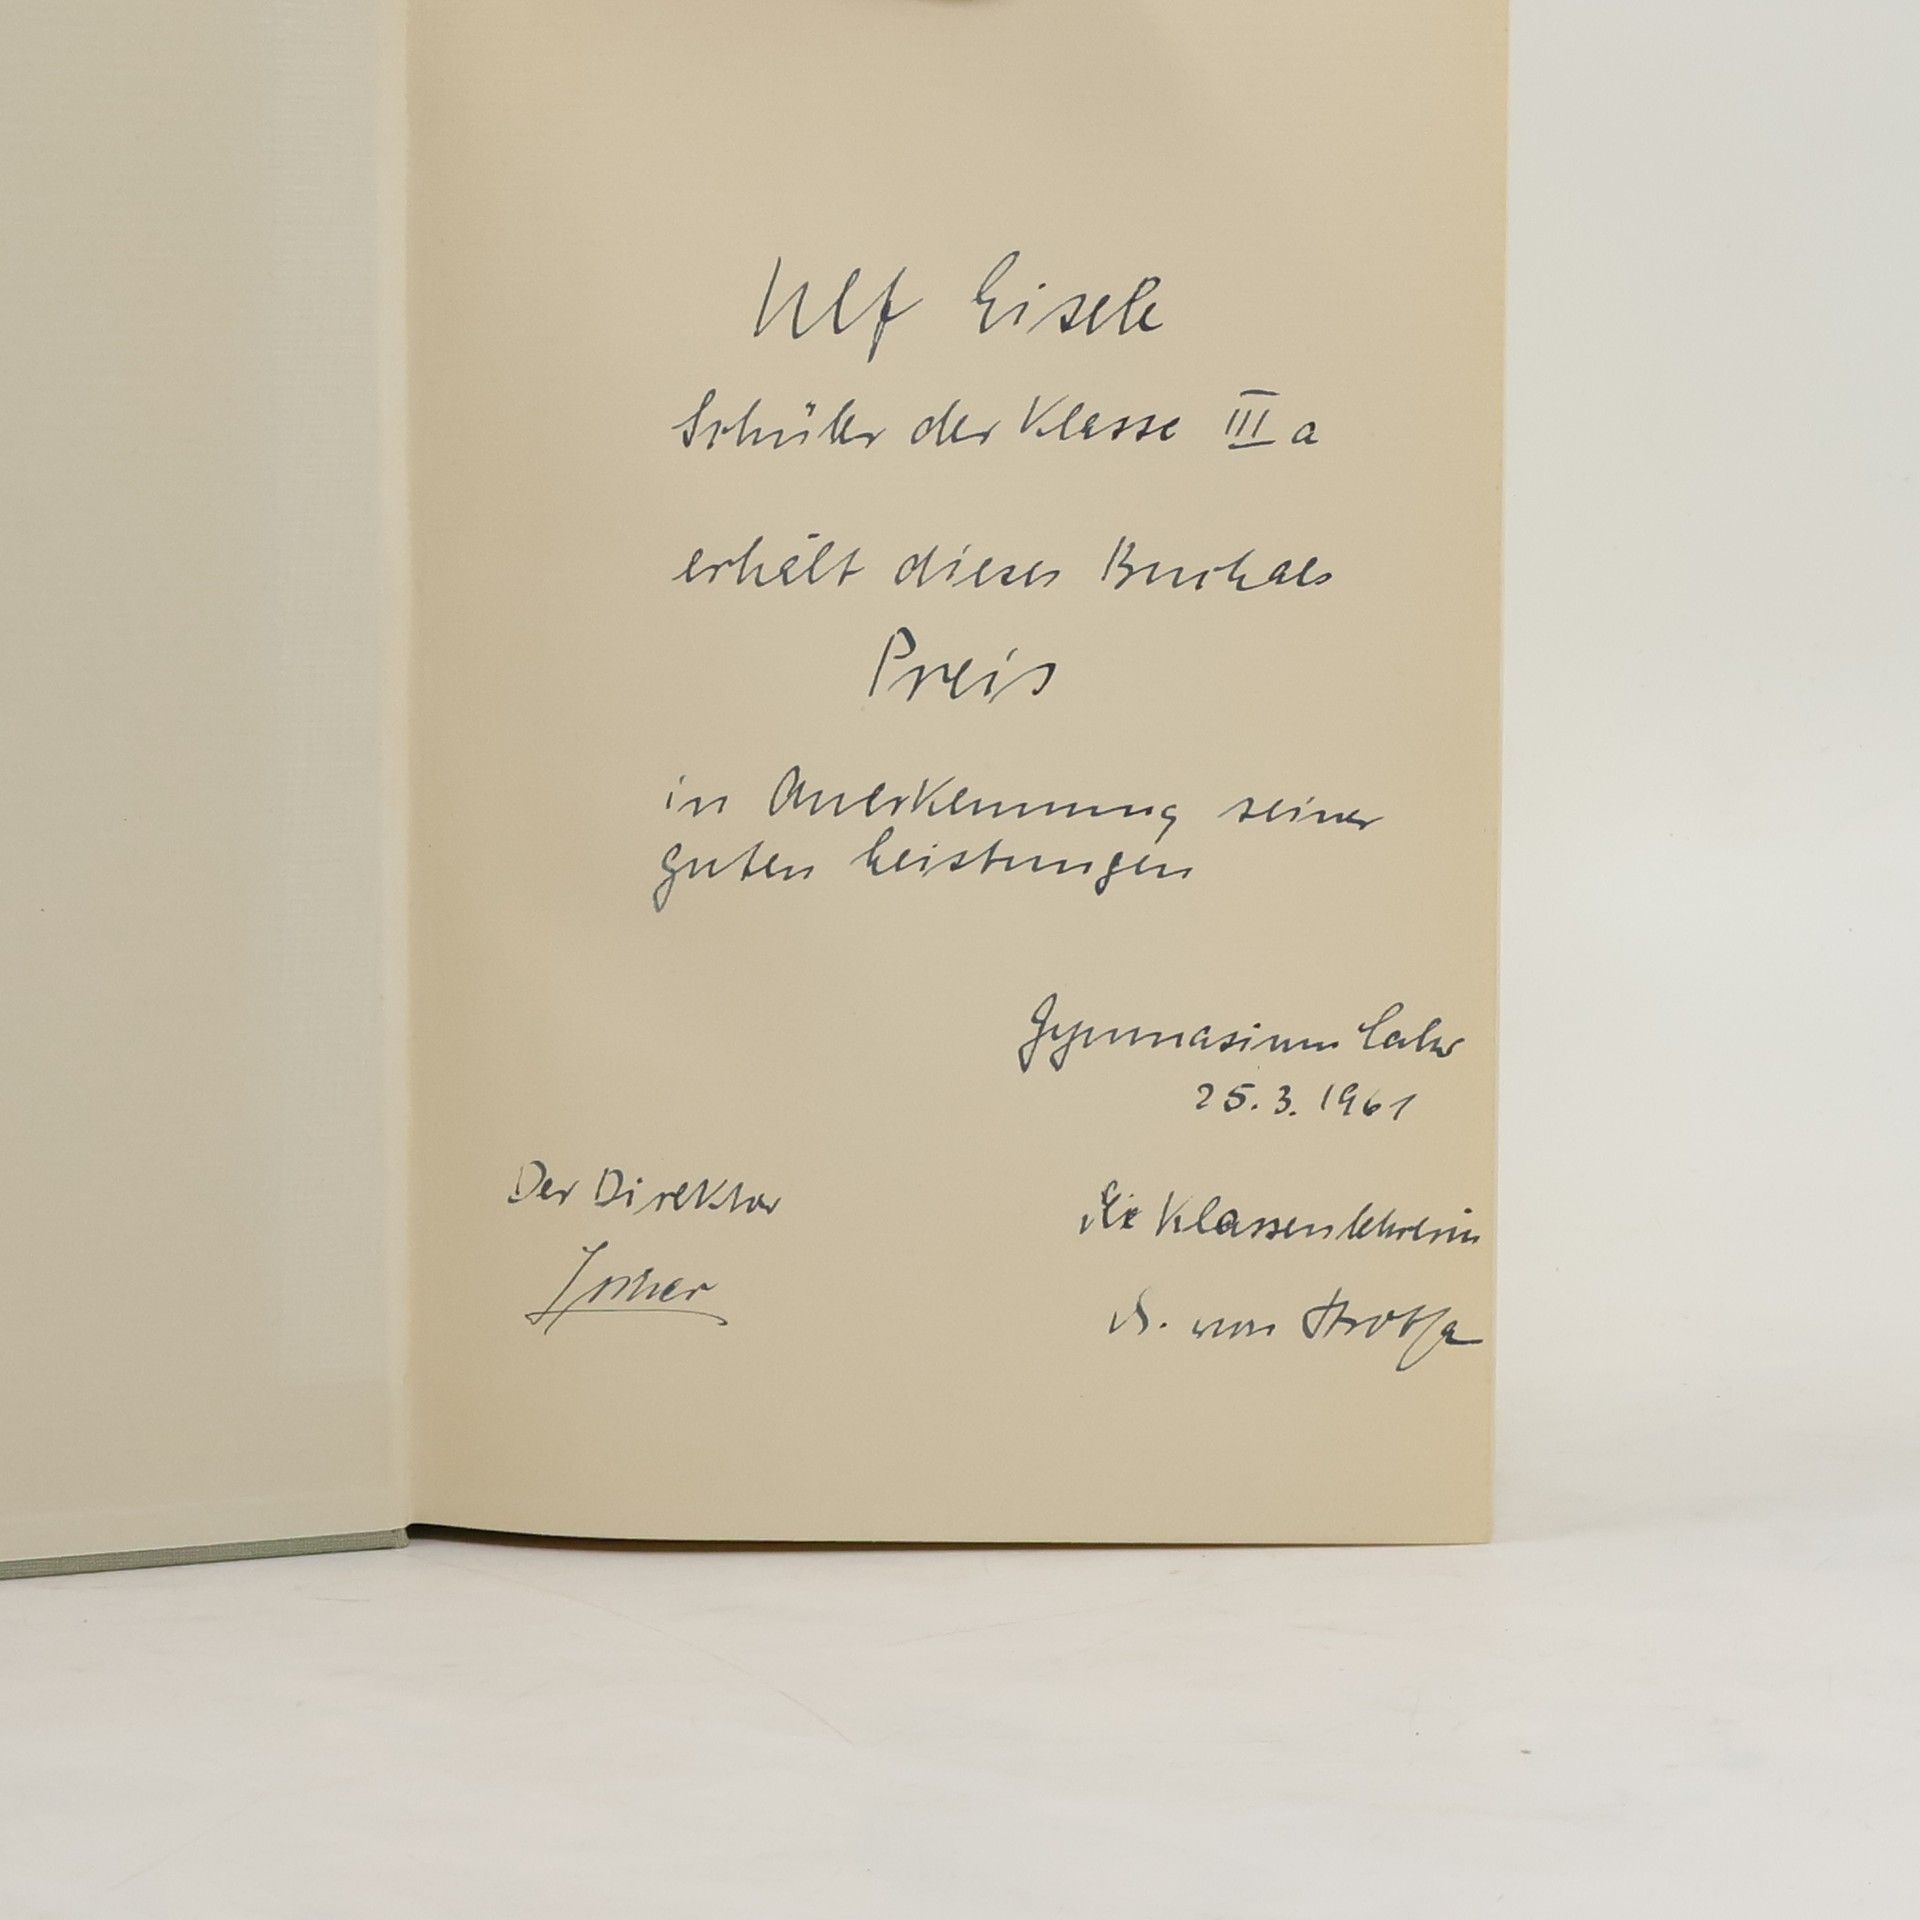 Ulf Eisele
Schüler der Klasse III a
erhält dieses Buch als
Preis
in Anerkennung seiner
guten Leistungen
Gymnasium Lahr
25.3.1961
Der Direktor
Die Klassenlehrerin
von